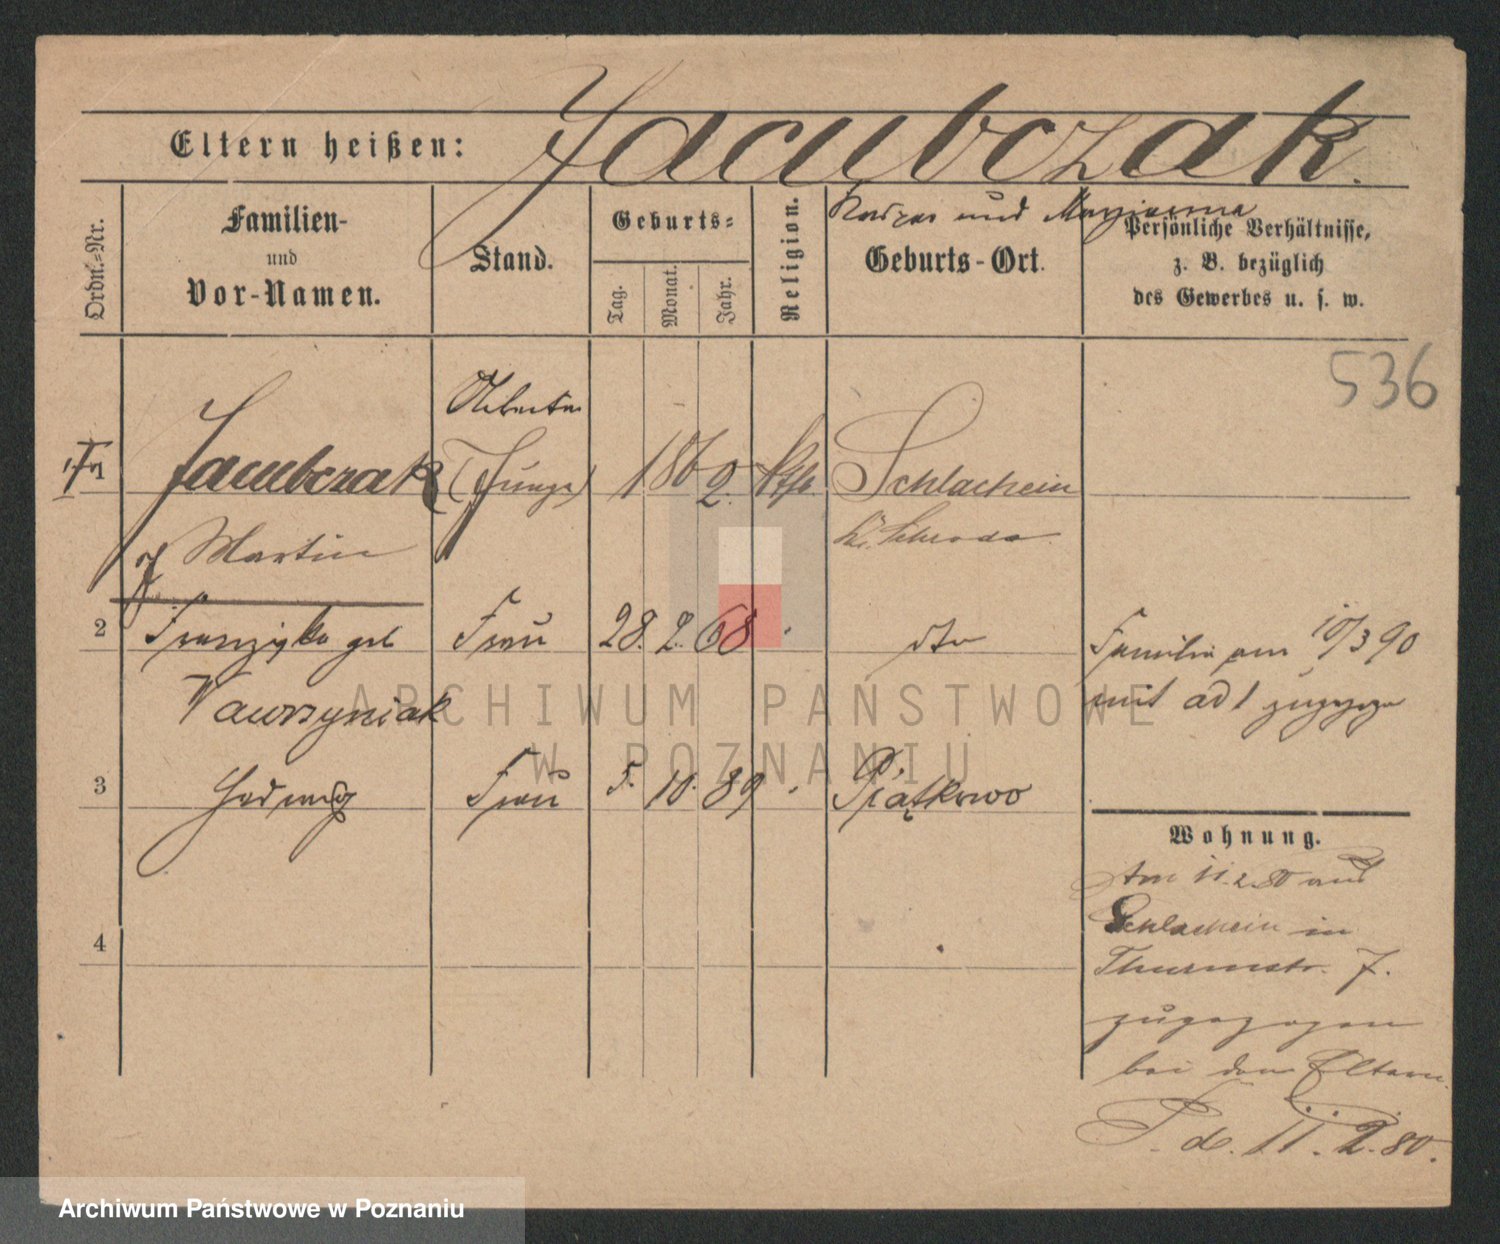 Jacubczak.
Eltern heißen:
und Marianna
Ordn.-Nr.
Familien-
und
Vor-Namen.
Stand.
Geburts-
Tag.
Monat.
Jahr.
Religion.
Geburts-Ort.
Persönliche Verhältnisse,
z. B. bezüglich
des Gewerbes u. s. w.
536
Arbeiter
1 Jacubczak (Junge) 1862 kth Schlachcin
Martin Kr. Schroda
2 Franziska geb Frau 28. 2. 68 dto Familie am 10/3 90
Wawrzyniak mit ad 1 zugezogen
3 Hedwig 5. 10. 89 Piątkowo
Wohnung.
Am 11.2.80 aus
Schlachcin in
Thurmstr. 7.
zugezogen
bei den Eltern.
P. d. 11. 2. 80.
4
ARCHIWUM PAŃSTWOWE
W POZNANIU
Archiwum Państwowe w Poznaniu